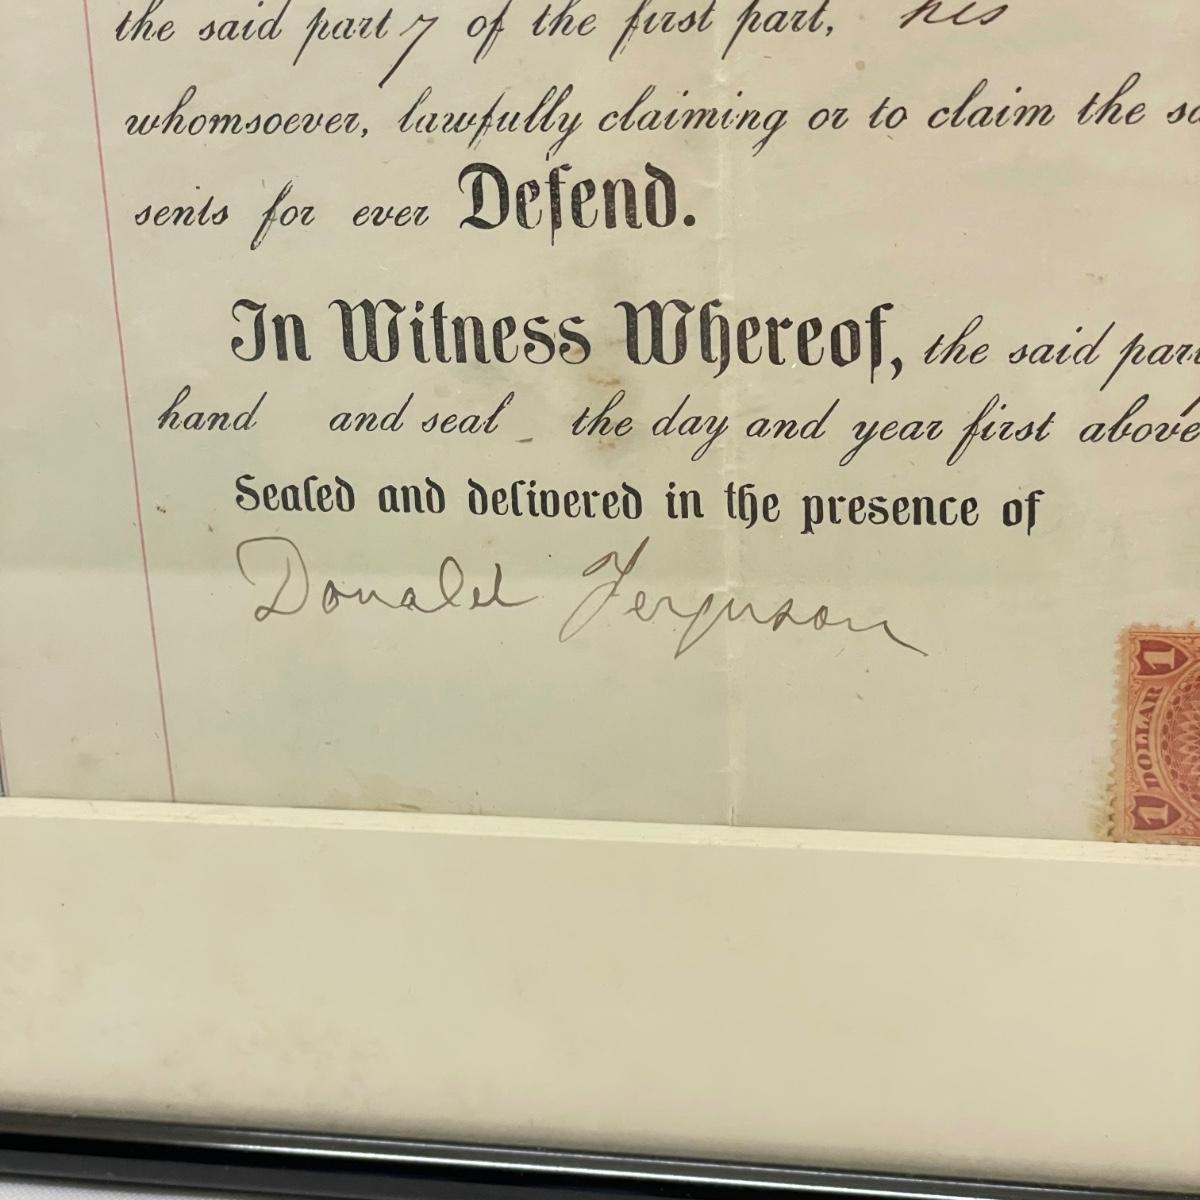 the said part y of the first part, his
whomsoever, lawfully claiming or to claim the sa
sents for ever Defend.
In Witness Whereof, the said part
hand and seal the day and year first above
Sealed and delivered in the presence of
Donald Ferguson
1
DOLLAR
1